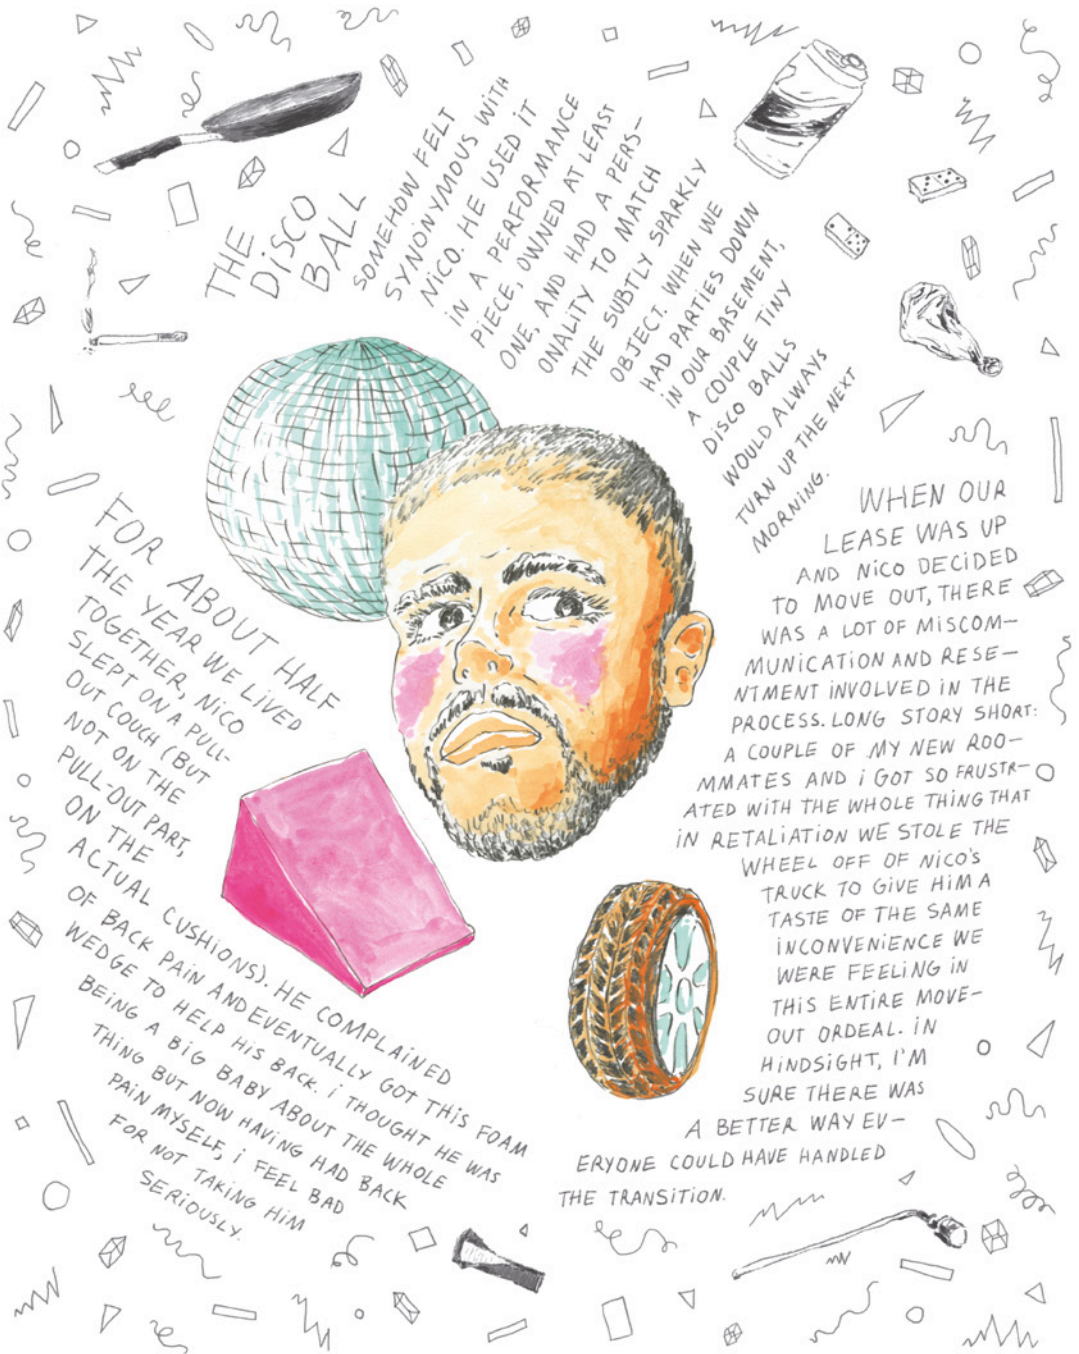 THE
DISCO
BALL
SOMEHOW FELT
SYNONYMOUS WITH
NICO. HE USED IT
IN A PERFORMANCE
PIECE, OWNED AT LEAST
ONE, AND HAD A PERS-
ONALITY TO MATCH
THE SUBTLY SPARKLY
OBJECT. WHEN WE
HAD PARTIES DOWN
IN OUR BASEMENT,
A COUPLE TINY
DISCO BALLS
WOULD ALWAYS
TURN UP THE NEXT
MORNING.
FOR ABOUT HALF
THE YEAR WE LIVED
TOGETHER, NICO
SLEPT ON A PULL-
OUT COUCH (BUT
NOT ON THE
PULL-OUT PART,
ON THE
ACTUAL CUSHIONS). HE COMPLAINED
OF BACK PAIN AND EVENTUALLY GOT THIS FOAM
WEDGE TO HELP HIS BACK. I THOUGHT HE WAS
BEING A BIG BABY ABOUT THE WHOLE
THING BUT NOW HAVING HAD BACK
PAIN MYSELF, I FEEL BAD
FOR NOT TAKING HIM
SERIOUSLY.
WHEN OUR
LEASE WAS UP
AND NICO DECIDED
TO MOVE OUT, THERE
WAS A LOT OF MISCOM-
MUNICATION AND RESE-
NTMENT INVOLVED IN THE
PROCESS. LONG STORY SHORT:
A COUPLE OF MY NEW ROO-
MMATES AND I GOT SO FRUSTR-
ATED WITH THE WHOLE THING THAT
IN RETALIATION WE STOLE THE
WHEEL OFF OF NICO'S
TRUCK TO GIVE HIM A
TASTE OF THE SAME
INCONVENIENCE WE
WERE FEELING IN
THIS ENTIRE MOVE-
OUT ORDEAL. IN
HINDSIGHT, I'M
SURE THERE WAS
A BETTER WAY EV-
ERYONE COULD HAVE HANDLED
THE TRANSITION.